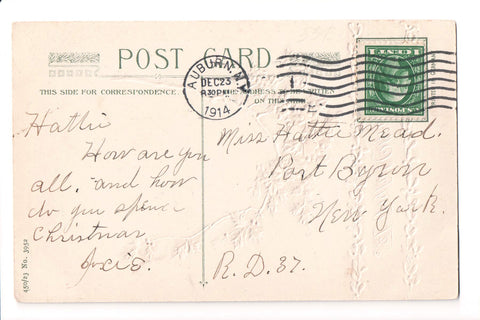 POST CARD
AUBURN, N.Y.
DEC 23
8 30 PM
1914
THIS SIDE FOR CORRESPONDENCE.
ADDRESS BE WRITTEN
ON THIS
1 CENT 1
Hattie
How are you
all, and how
do you spend
Christmas
Miss Hattie Mead.
Port Byron
New York.
R.D. 37.
450/23 No. 3952